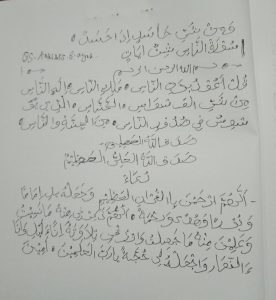 وَمِنْ شَرِّ حَاسِدٍ إِذَا حَسَدَ
سورة النَّاسِ ست آيات
بسم الله الرحمن الرحيم
قُلْ أَعُوذُ بِرَبِّ النَّاسِ مَلِكِ النَّاسِ إِلَهِ النَّاسِ
مِنْ شَرِّ الْوَسْوَاسِ الْخَنَّاسِ الَّذِي يُوَ
سْوِسُ فِي صُدُورِ النَّاسِ مِنَ الْجِنَّةِ وَالنَّاسِ
صَدَقَ اللَّهُ الْعَظِيمُ
صَدَقَ اللَّهُ الْعَلِيُّ الْعَظِيمُ
- اللَّهُمَّ ارْحَمْنِي بِالْقُرْآنِ الْعَظِيمِ وَاجْعَلْهُ لِي إِمَامًا
وَنُورًا وَهُدًى وَرَحْمَةً اللَّهُمَّ ذَكِّرْنِي مِنْهُ مَا نَسِيتُ
وَعَلِّمْنِي مِنْهُ مَا جَهِلْتُ وَارْزُقْنِي تِلَاوَتَهُ آنَاءَ اللَّيْلِ وَأَنَا
ءَ النَّهَارِ وَاجْعَلْهُ لِي حُجَّةً يَا رَبَّ الْعَلَمِينَ آمِينَ